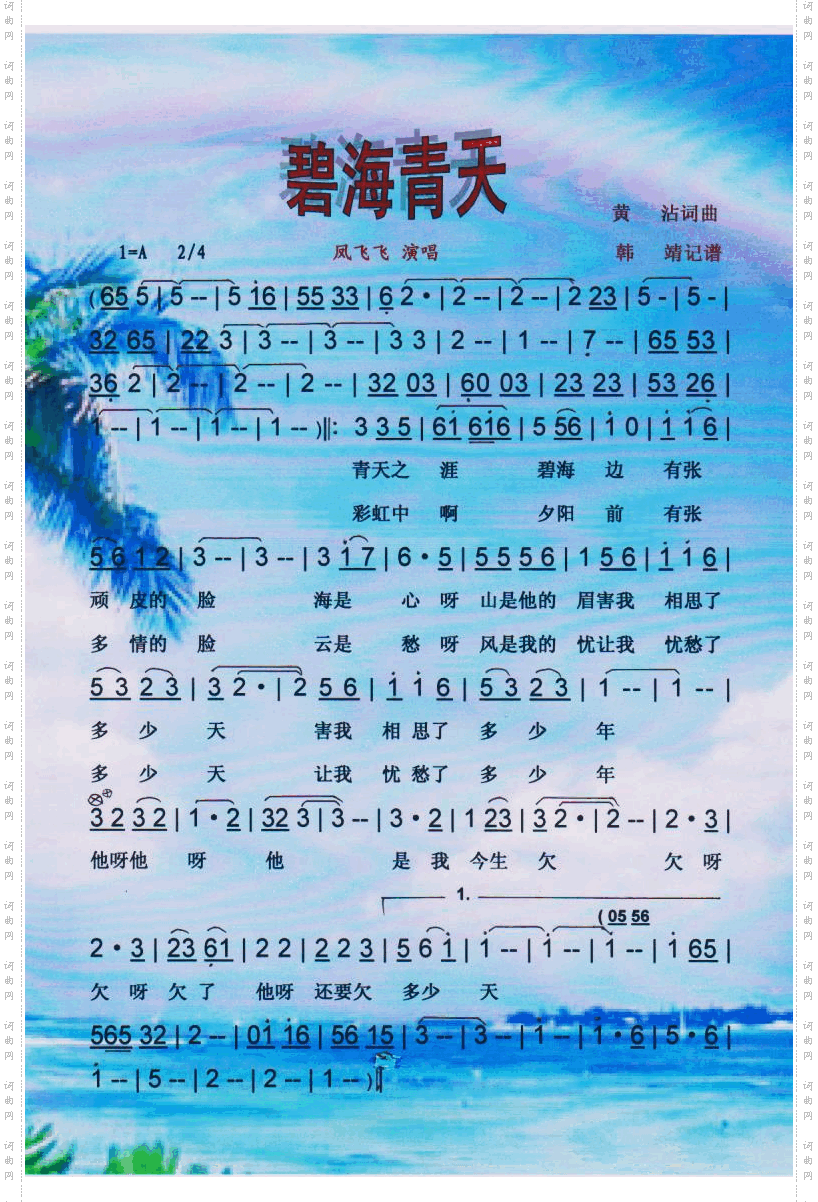 碧海青天
黄 沾词曲
1=A 2/4 凤飞飞 演唱 韩 靖记谱
(65 5 | 5 -- | 5 16 | 55 33 | 6 2 · | 2 -- | 2 -- | 2 23 | 5 - | 5 - |
32 65 | 22 3 | 3 -- | 3 -- | 3 3 | 2 -- | 1 -- | 7 -- | 65 53 |
36 2 | 2 -- | 2 -- | 2 -- | 32 03 | 60 03 | 23 23 | 53 26 |
1 -- | 1 -- | 1 -- | 1 -- )‖: 3 3 5 | 61 616 | 5 56 | 1 0 | 1 1 6 |
青天之 涯 碧海 边 有张
彩虹中 啊 夕阳 前 有张
5 6 1 2 | 3 -- | 3 -- | 3 1 7 | 6 · 5 | 5 5 5 6 | 1 5 6 | 1 1 6 |
顽 皮的 脸 海是 心 呀 山是他的 眉害我 相思了
多 情的 脸 云是 愁 呀 风是我的 忧让我 忧愁了
5 3 2 3 | 3 2 · | 2 5 6 | 1 1 6 | 5 3 2 3 | 1 -- | 1 -- |
多 少 天 害我 相 思了 多 少 年
多 少 天 让我 忧 愁了 多 少 年
3 2 3 2 | 1 · 2 | 32 3 | 3 -- | 3 · 2 | 1 23 | 3 2 · | 2 -- | 2 · 3 |
他呀他 呀 他 是 我 今生 欠 欠 呀
1.
( 05 56
2 · 3 | 23 61 | 2 2 | 2 2 3 | 5 6 1 | 1 -- | 1 -- | 1 -- | 1 65 |
欠 呀 欠 了 他呀 还要欠 多少 天
565 32 | 2 -- | 01 16 | 56 15 | 3 -- | 3 -- | 1 -- | 1 · 6 | 5 · 6 |
1 -- | 5 -- | 2 -- | 2 -- | 1 -- )‖